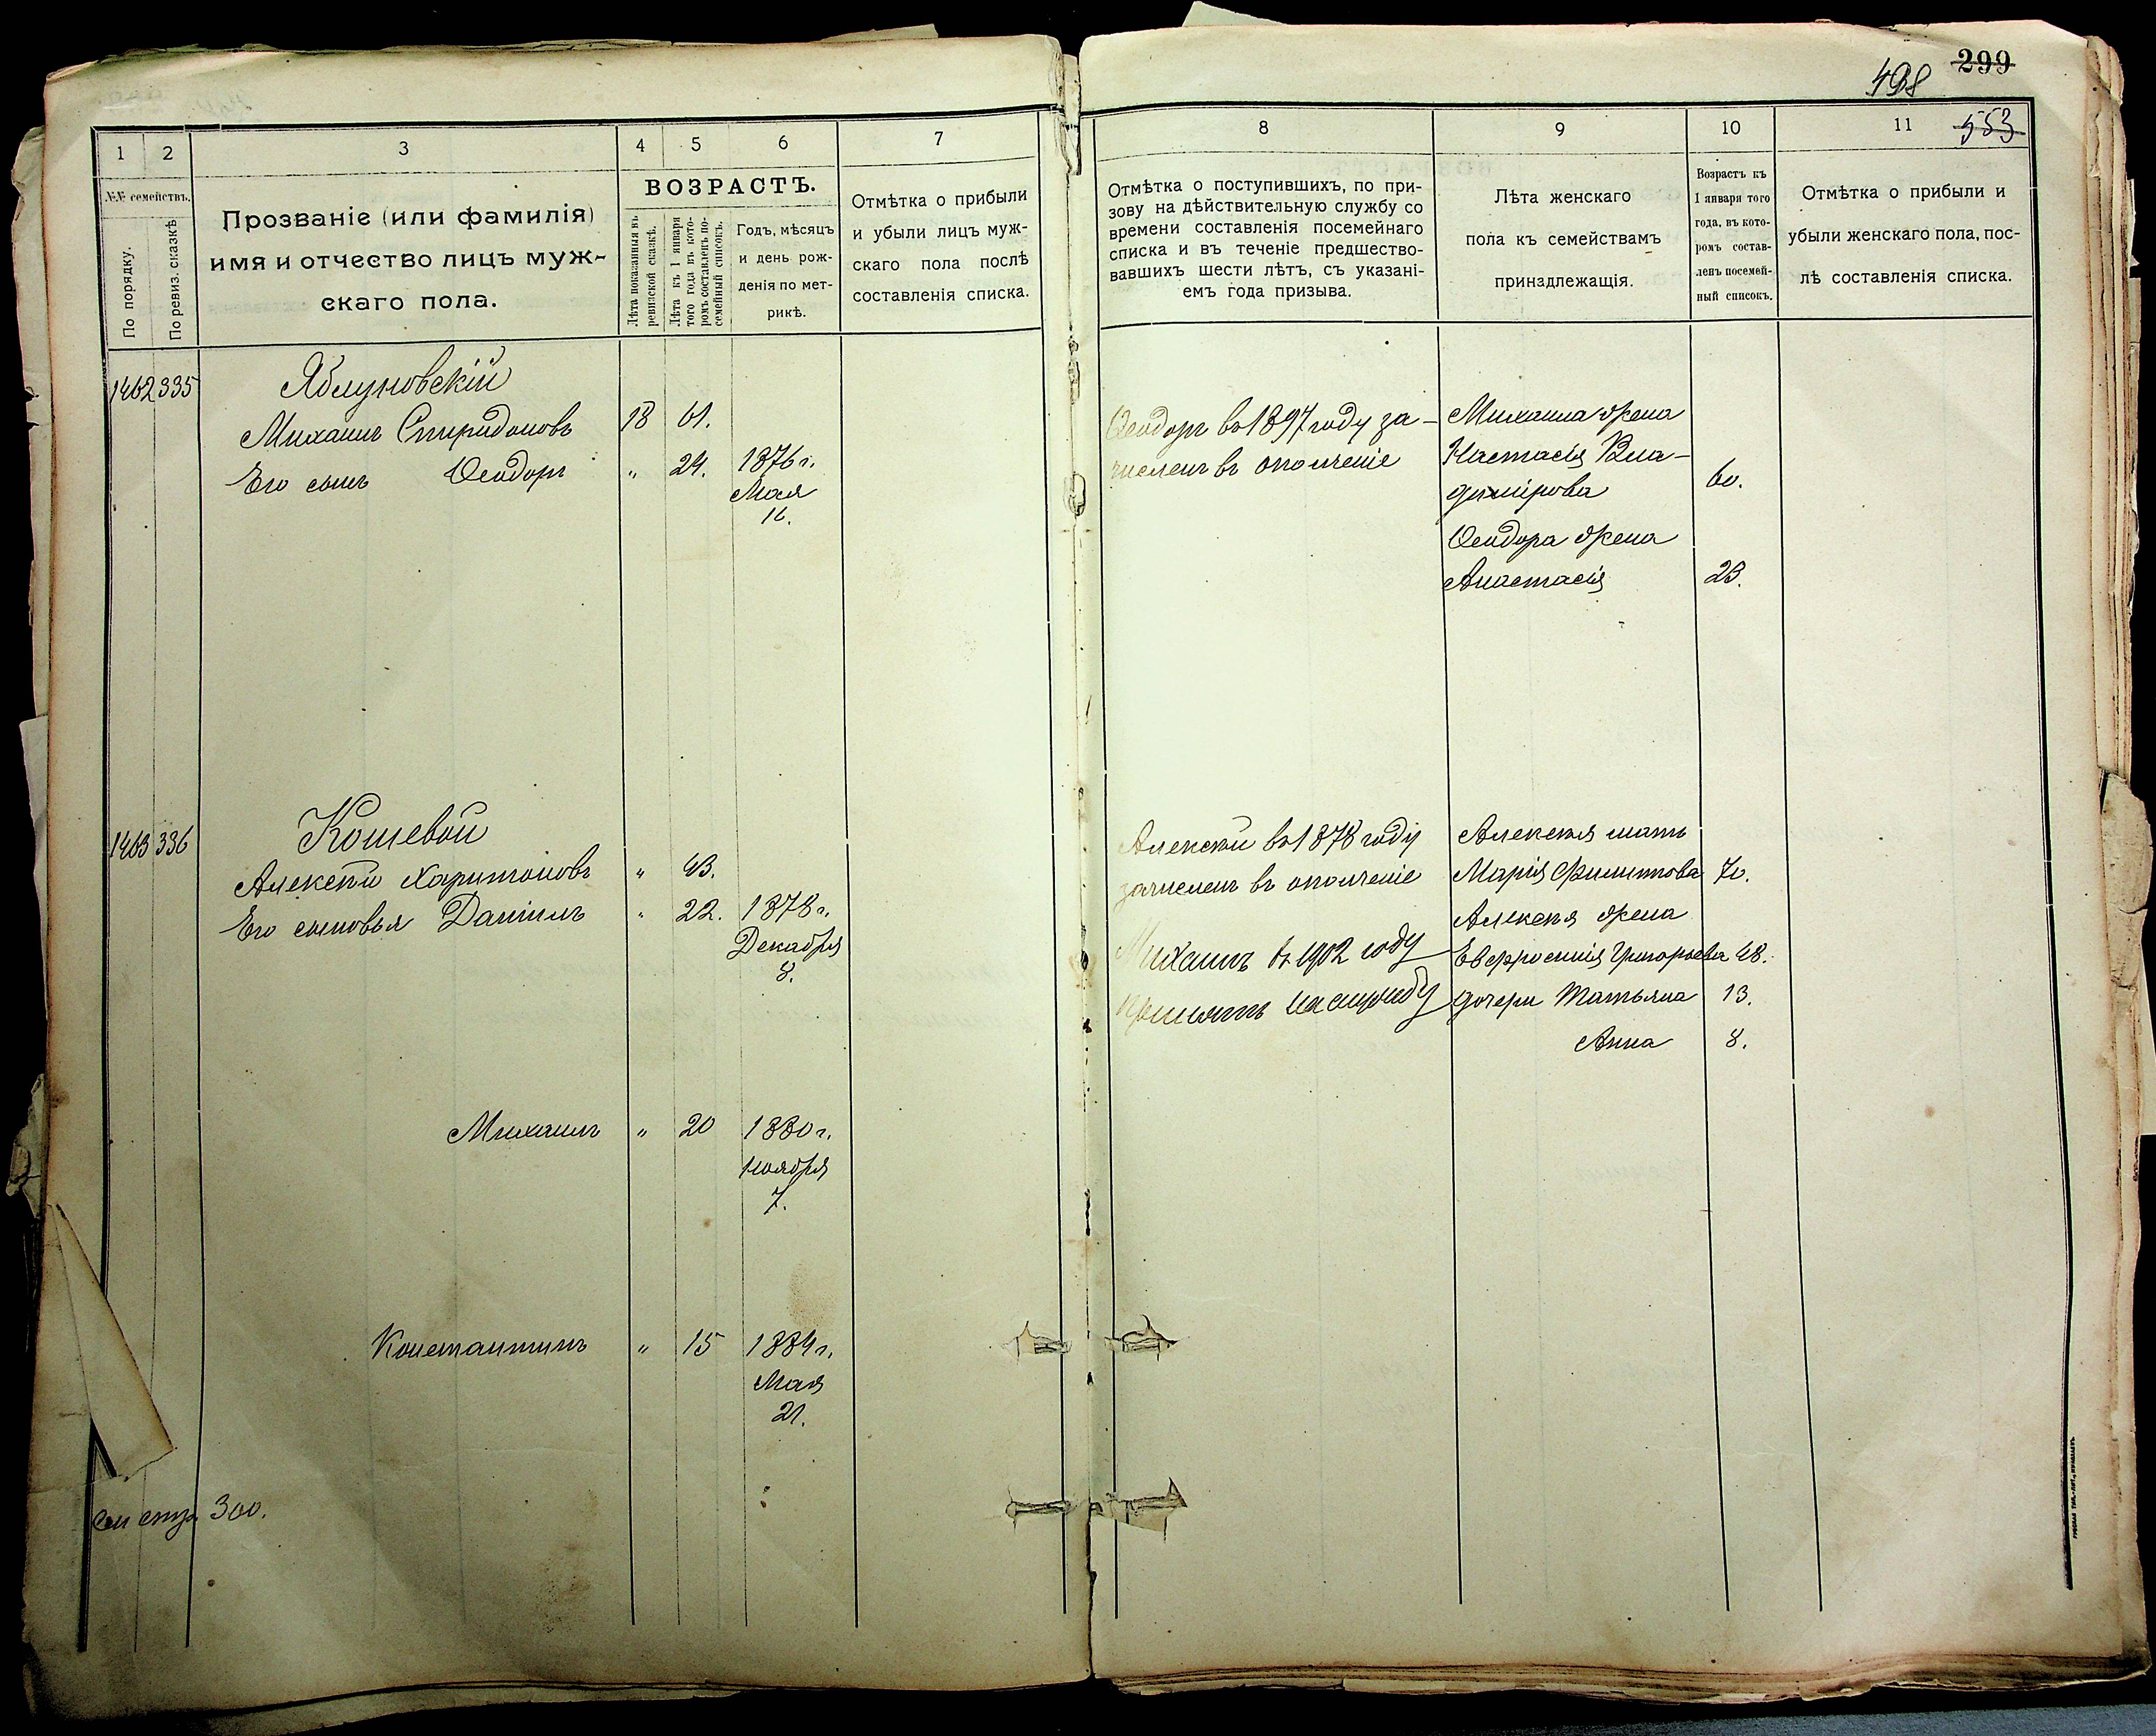 299
498
553
1
2
3
4
5
6
7
№№ семействъ.
По порядку.
По ревиз. сказкѣ
Прозваніе (или фамилія)
имя и отчество лицъ муж-
скаго пола.
ВОЗРАСТЪ.
Лѣта показанныя въ
ревизской сказкѣ.
Лѣта къ 1 января
того года въ кото-
ромъ составленъ по-
семейный списокъ.
Годъ, мѣсяцъ
и день рож-
денія по мет-
рикѣ.
Отмѣтка о прибыли
и убыли лицъ муж-
скаго пола послѣ
составленія списка.
8
9
10
11
Отмѣтка о поступившихъ, по при-
зову на дѣйствительную службу со
времени составленія посемейнаго
списка и въ теченіе предшество-
вавшихъ шести лѣтъ, съ указані-
емъ года призыва.
Лѣта женскаго
пола къ семействамъ
принадлежащія.
Возрастъ къ
1 января того
года, въ кото-
ромъ состав-
ленъ посемей-
ный списокъ.
Отмѣтка о прибыли и
убыли женскаго пола, пос-
лѣ составленія списка.
1462 335 Яблуновскій
Михаилъ Спиридоновъ 18 61.
Его сынъ Ѳеодоръ " 24. 1876 г.
Мая
16.
Ѳеодоръ въ 1897 году за-
численъ въ ополченіе
Михаила жена
Настасія Вла-
димірова 60.
Ѳеодора жена
Анастасія 23.
1463 336 Кошевой
Алексѣй Харитоновъ " 43.
Его сыновья Даніилъ " 22. 1878 г.
Декабря
8.
Михаилъ " 20 1880 г.
Ноября
7.
Константинъ " 15 1884 г.
Мая
21.
Алексѣй въ 1878 году
зачисленъ въ ополченіе
Михаилъ въ 1902 году
принятъ на службу
Алексѣя мать
Марія Филиппова 70.
Алексѣя жена
Евфросинія Григорьева 48.
дочери Татьяна 13.
Анна 8.
см стр. 300.